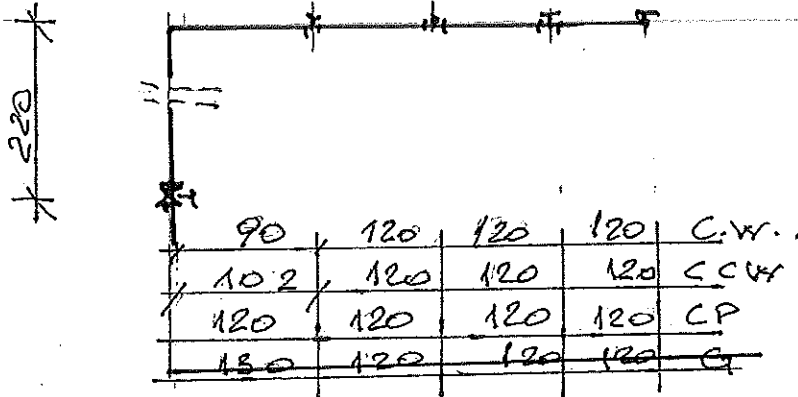 220
90 120 120 120 C.W.
102 120 120 120 CCW
120 120 120 120 CP
120 120 120 G